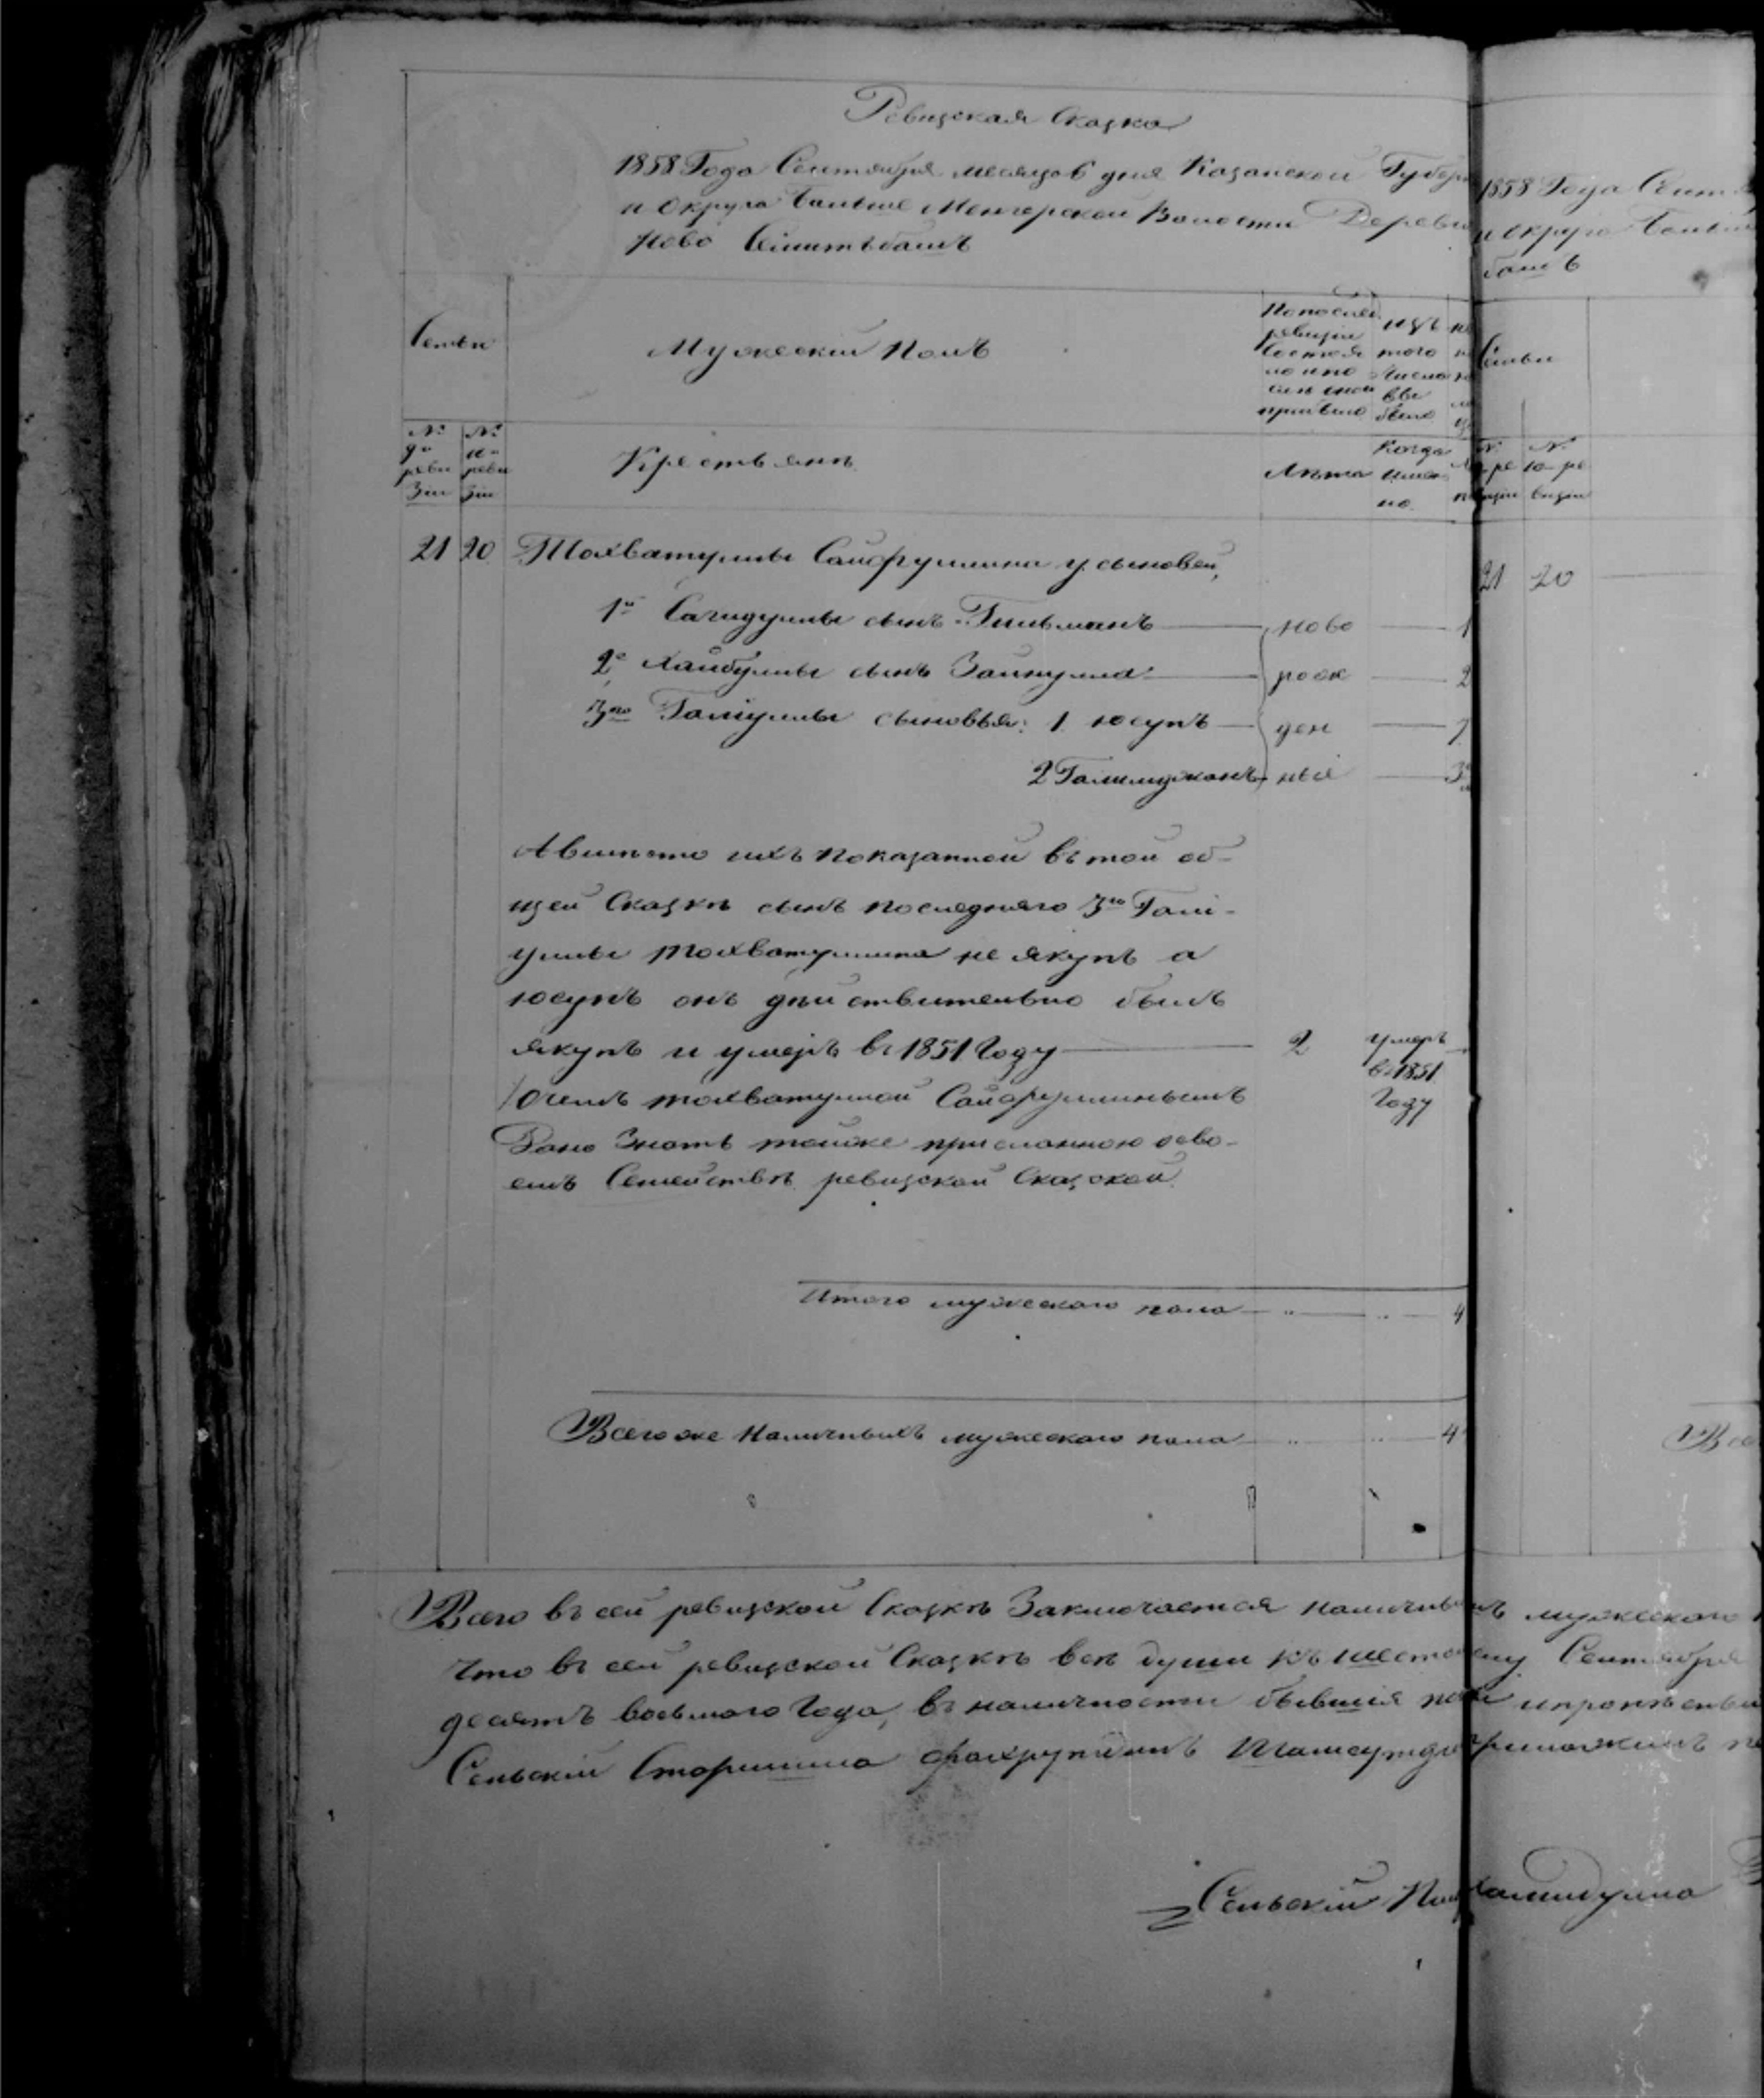 Ревизская Сказка
1858 Года Сентября месяца 6 дня Казанской Губер
и Округа Больше Менгерской Волости Дерев
Ново
Семьи
Мужеский Полъ
По последн ревизіи состоя ло и по сле оной прибыло
Изъ того числа вы было
№ 9й реви зіи
№ 10 реви зіи
Крестьяне
Лѣта
Когда имен но
21 20 Тохватуллы Сайфуллина у сыновей,
1го Сагидуллы сынъ Гильманъ ново 1
2го Хайбуллы сынъ Зайнулла рож 2
3го Галіуллы сыновья: 1 Юсупъ ден 7
2 Галимужанъ ные 3
А вместо ихъ показанной въ той об-
щей Сказкѣ сынъ последняго 3го Галі-
уллы Тохватуллина не Якупъ а
Юсупъ онъ дѣйствительно былъ
Якупъ и умеръ въ 1851 Году 2 умеръ въ 1851 Году
/О чемъ Тохватуллой Сайфуллинымъ
Дано Знать тойже присланною о сво-
емъ Семействѣ ревизской Сказской
Итого мужескаго пола 4
Всего же Наличныхъ мужескаго пола 4
Всего въ сей ревизской Сказкѣ Заключается наличны
что въ сей ревизской Сказкѣ всѣ души къ шесто
десятъ восьмого Года, въ наличности бывшія
Сельскій Старшина Фахрутдинъ
Сельскій
1858 Года Сент
и Округа Больш
башъ
Семьи
№ 9 ре визіи
№ 10 ре визіи
21 20
Все
мужескаго
Сентября
приложилъ